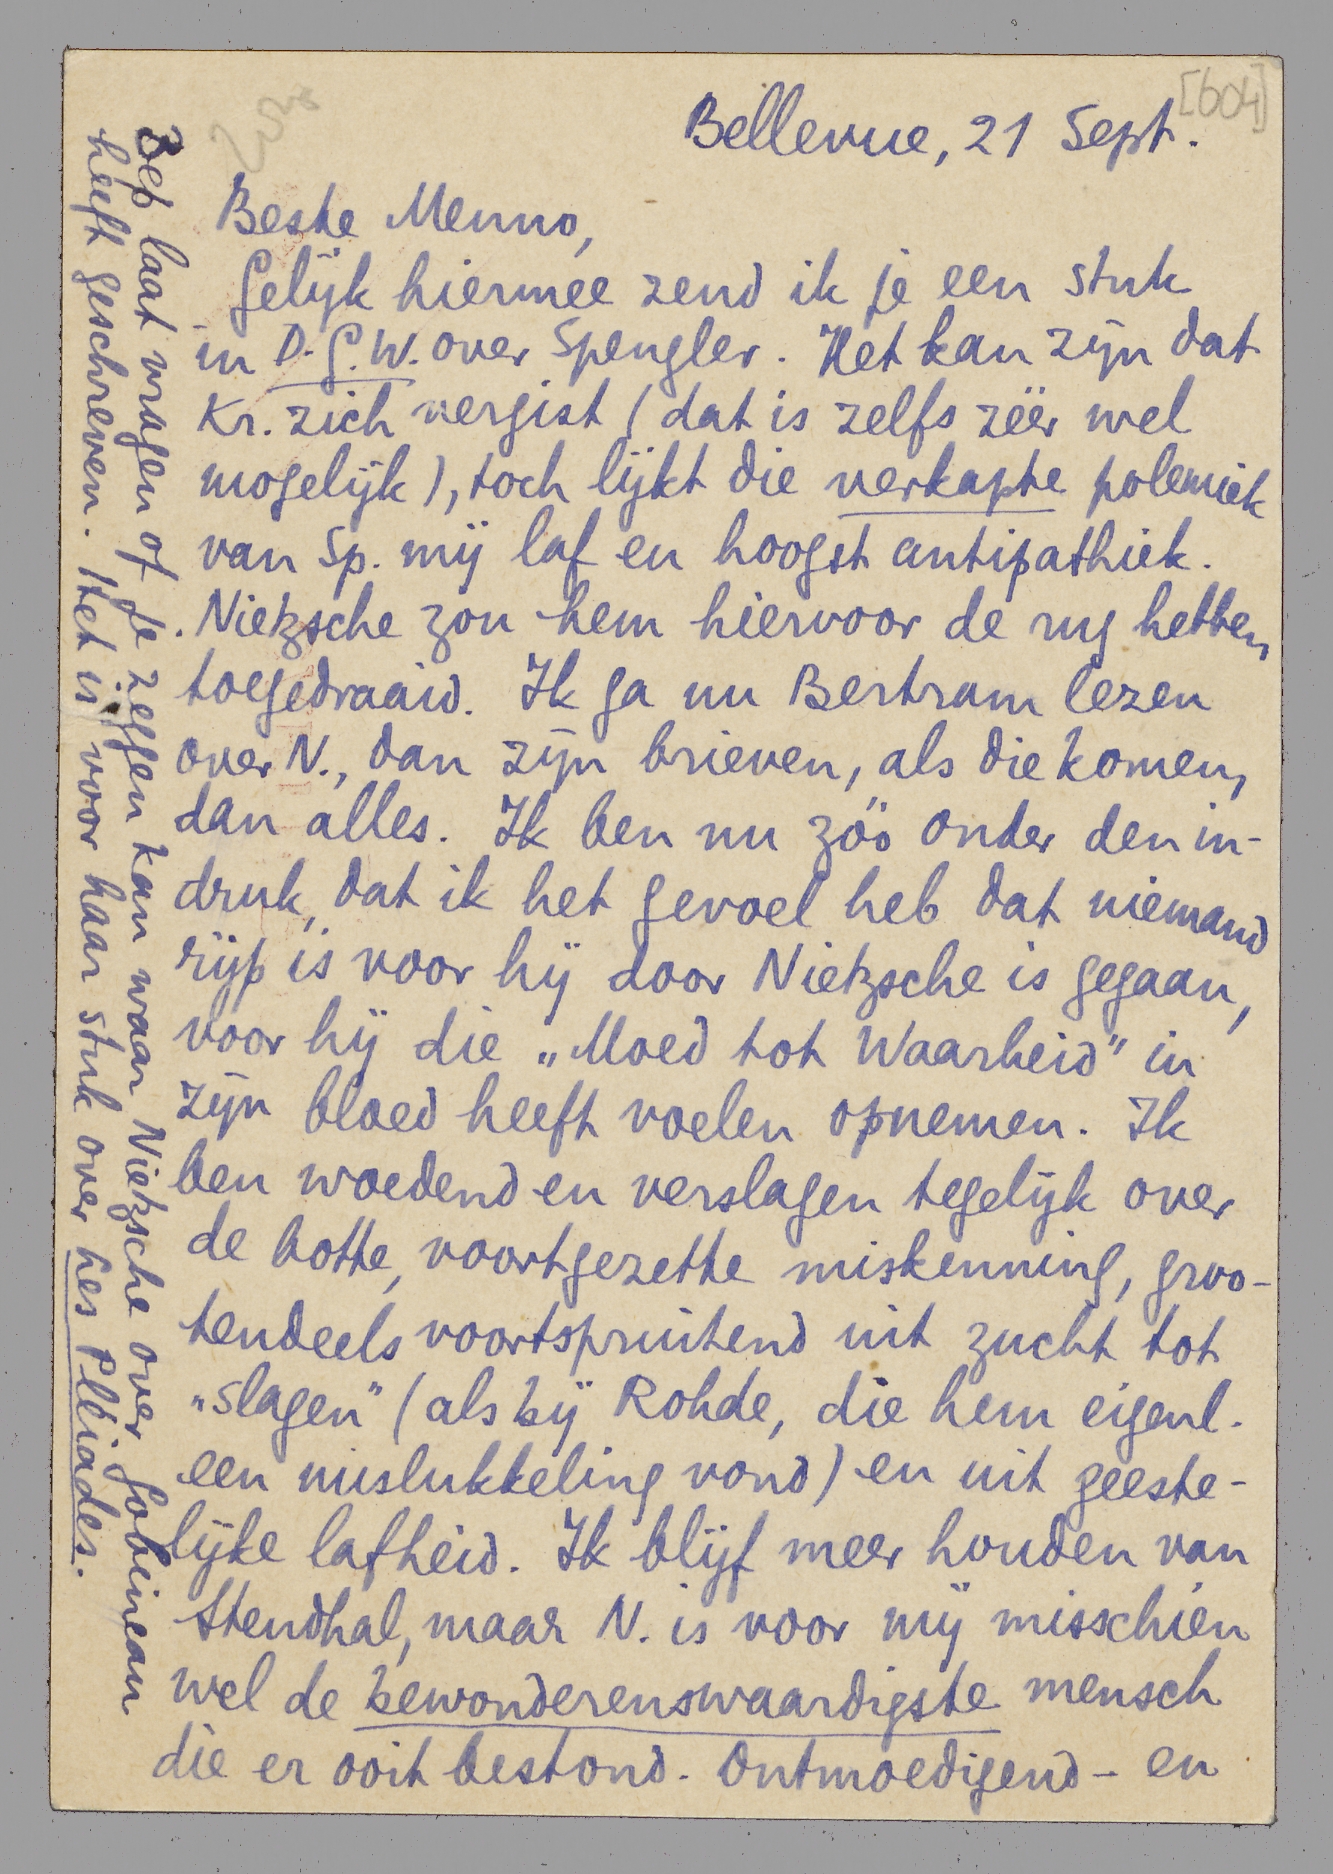 [604]
Bellevue, 21 Sept.
Beste Menno,
Gelijk hiermee zend ik je een stuk
in D.G.W. over Spengler. Het kan zijn dat
Kr. zich vergist (dat is zelfs zéér wel
mogelijk), toch lijkt die verkapte polemiek
van Sp. mij laf en hoogst antipathiek.
Nietzsche zou hem hiervoor de rug hebben
toegedraaid. Ik ga nu Bertram lezen
over N., dan zijn brieven, als die komen,
dan alles. Ik ben nu zóó onder den in-
druk, dat ik het gevoel heb dat niemand
"rijp" is voor hij door Nietzsche is gegaan,
voor hij die „Moed tot Waarheid" in
zijn bloed heeft voelen opnemen. Ik
ben woedend en verslagen tegelijk over
de botte, voortgezette miskenning, groo-
tendeels voortspruitend uit zucht tot
„slagen" (als bij Rohde, die hem eigenl.
een mislukkeling vond) en uit geeste-
lijke lafheid. Ik blijf meer houden van
Stendhal, maar N. is voor mij misschien
wel de bewonderenswaardigste mensch
die er ooit bestond. Ontmoedigend - en
Bep laat vragen of je zeggen kan waar Nietzsche over Gobineau
heeft geschreven. Het is voor haar stuk over les Pléiades.